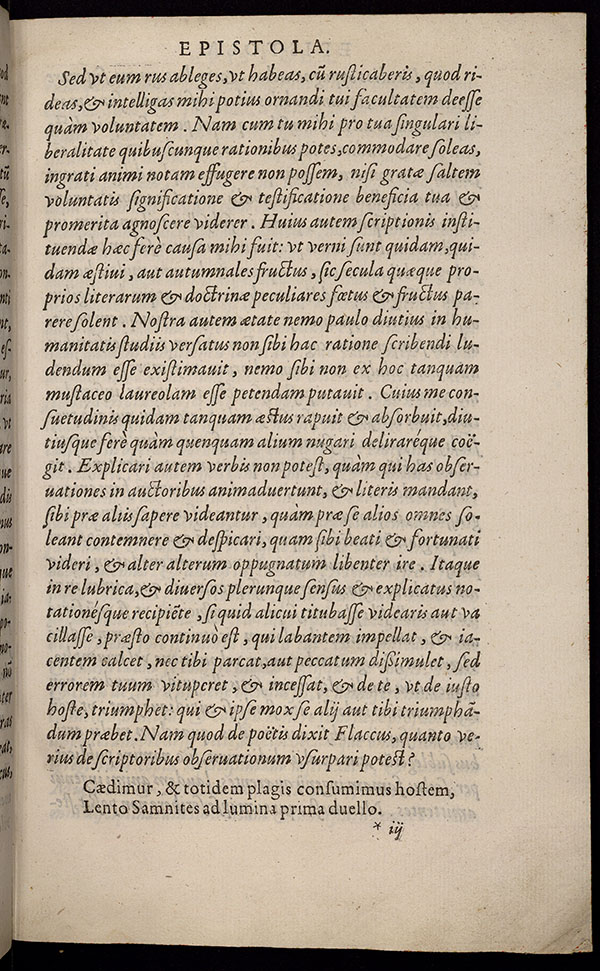 EPISTOLA.
Sed vt eum rus ableges, vt habeas, cū rusticaberis, quod ri-
deas, & intelligas mihi potius ornandi tui facultatem deesse
quàm voluntatem. Nam cum tu mihi pro tua singulari li-
beralitate quibuscunque rationibus potes, commodare soleas,
ingrati animi notam effugere non possem, nisi gratæ saltem
voluntatis significatione & testificatione beneficia tua &
promerita agnoscere viderer. Huius autem scriptionis insti-
tuendæ hæc ferè causa mihi fuit: vt verni sunt quidam, qui-
dam æstiui, aut autumnales fructus, sic secula quæque pro-
prios literarum & doctrinæ peculiares fœtus & fructus pa-
rere solent. Nostra autem ætate nemo paulo diutius in hu-
manitatis studiis versatus non sibi hac ratione scribendi lu-
dendum esse existimauit, nemo sibi non ex hoc tanquam
mustaceo laureolam esse petendam putauit. Cuius me con-
suetudinis quidam tanquam æstus rapuit & absorbuit, diu-
tiusque ferè quàm quenquam alium nugari deliraréque coë-
git. Explicari autem verbis non potest, quàm qui has obser-
uationes in auctoribus animaduertunt, & literis mandant,
sibi præ aliis sapere videantur, quàm præ se alios omnes so-
leant contemnere & despicari, quam sibi beati & fortunati
videri, & alter alterum oppugnatum libenter ire. Itaque
in re lubrica, & diuersos plerunque sensus & explicatus no-
tationésque recipiēte, si quid alicui titubasse videaris aut va
cillasse, præsto continuò est, qui labantem impellat, & ia-
centem calcet, nec tibi parcat, aut peccatum dißimulet, sed
errorem tuum vitupcret, & incessat, & de te, vt de iusto
hoste, triumphet: qui & ipse mox se alij aut tibi triumphā-
dum præbet. Nam quod de poëtis dixit Flaccus, quanto ve-
rius de scriptoribus obseruationum vsurpari potest?
Cædimur, & totidem plagis consumimus hostem,
Lento Samnites ad lumina prima duello.
* iij